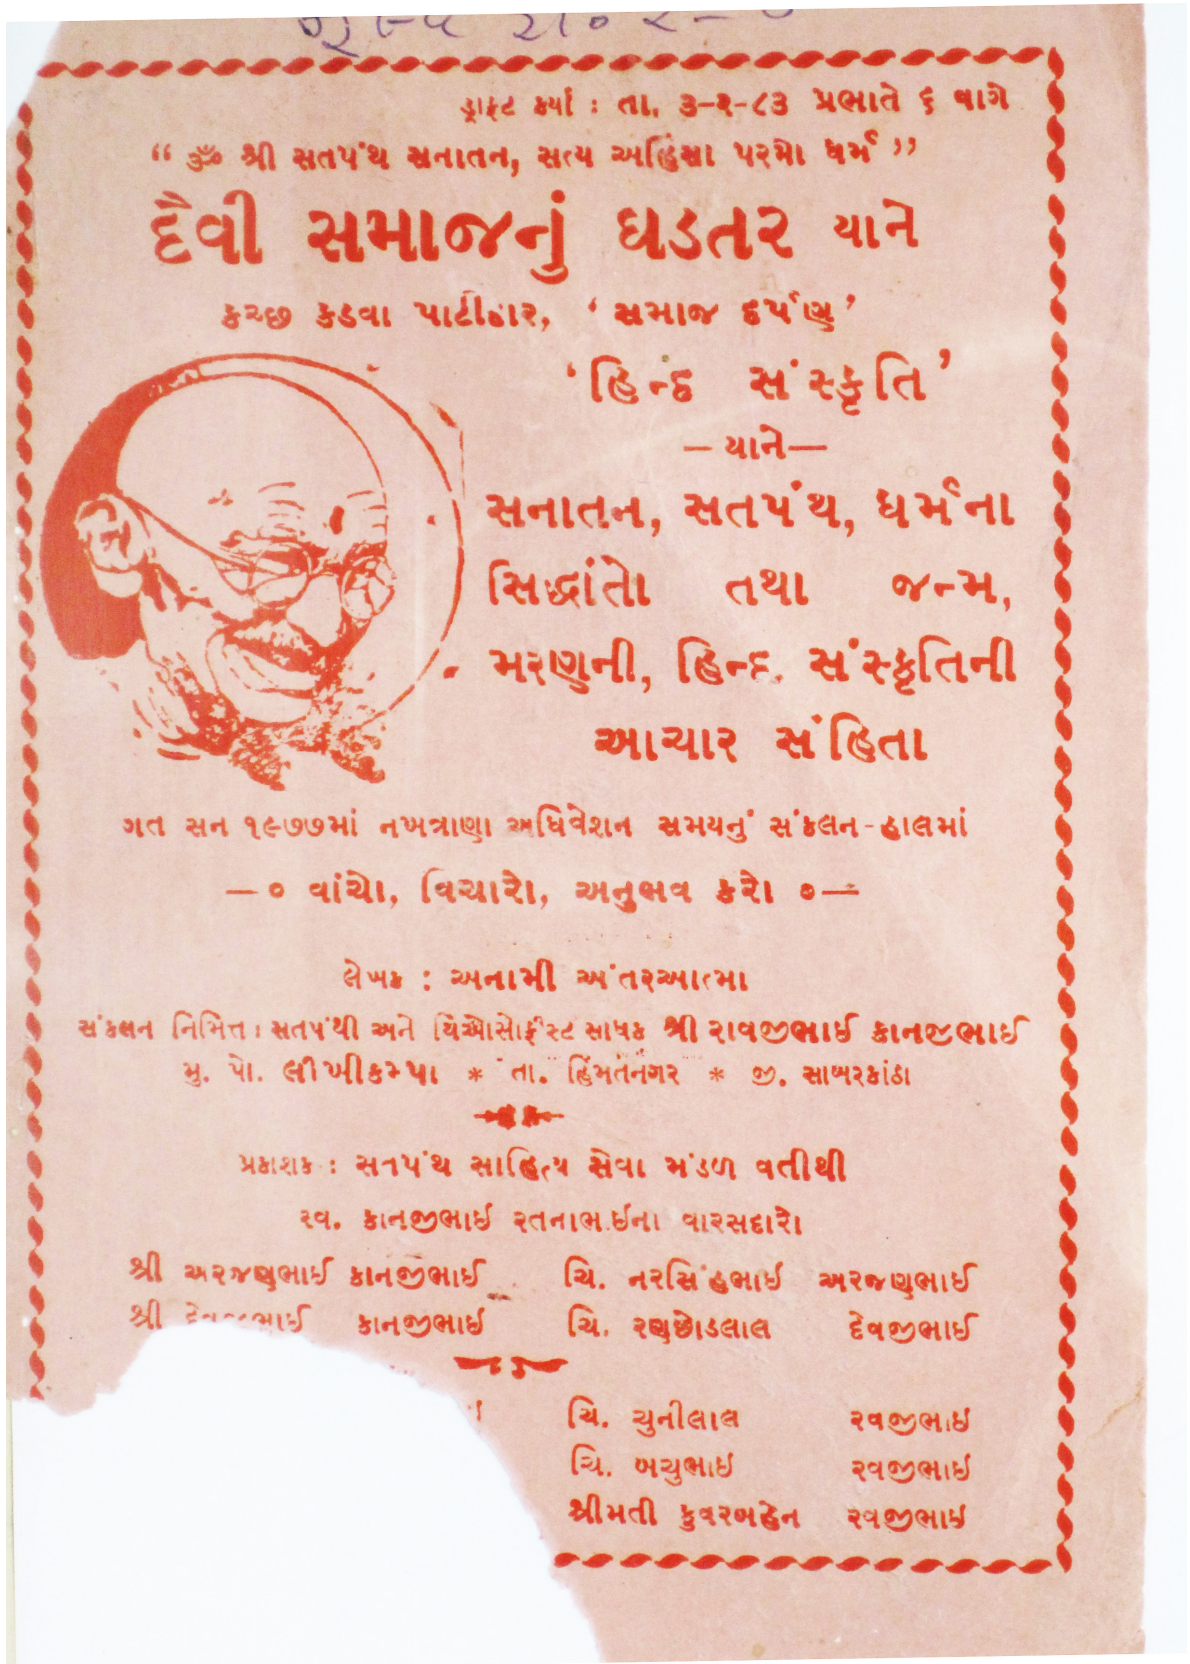 ડ્રાફ્ટ કર્યા : તા. ૩-૨-૮૩ પ્રભાતે ૬ વાગે
“ ૐ શ્રી સતપંથ સનાતન, સત્ય અહિંસા પરમો ધર્મ ”
દૈવી સમાજનું ઘડતર યાને
કચ્છ કડવા પાટીદાર, ‘ સમાજ દર્પણ ’
‘ હિન્દ સંસ્કૃતિ ’
— યાને —
સનાતન, સતપંથ, ધર્મના
સિદ્ધાંતો તથા જન્મ,
મરણની, હિન્દ સંસ્કૃતિની
આચાર સંહિતા
ગત સન ૧૯૭૭માં નખત્રાણા અધિવેશન સમયનું સંકલન-હાલમાં
—૦ વાંચો, વિચારો, અનુભવ કરો ૦—
લેખક : અનામી અંતરઆત્મા
સંકલન નિમિત્ત : સતપંથી અને થિઓસોફીસ્ટ સાધક શ્રી રાવજીભાઈ કાનજીભાઈ
મુ. પો. લીંખીકમ્પા * તા. હિંમતનગર * જી. સાબરકાંઠા
પ્રકાશક : સતપંથ સાહિત્ય સેવા મંડળ વતીથી
સ્વ. કાનજીભાઈ રતનાભાઈના વારસદારો
શ્રી અરજણભાઈ કાનજીભાઈ ચિ. નરસિંહભાઈ અરજણભાઈ
શ્રી દેવજીભાઈ કાનજીભાઈ ચિ. રણછોડલાલ દેવજીભાઈ
ચિ. ચુનીલાલ રવજીભાઇ
ચિ. બચુભાઇ રવજીભાઇ
શ્રીમતી કુવરબહેન રવજીભાઇ